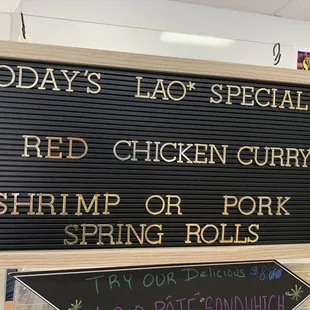 TODAY'S LAO* SPECIAL
RED CHICKEN CURRY
SHRIMP OR PORK
SPRING ROLLS
TRY OUR DELICIOUS
PÂTÉ SANDWHICH